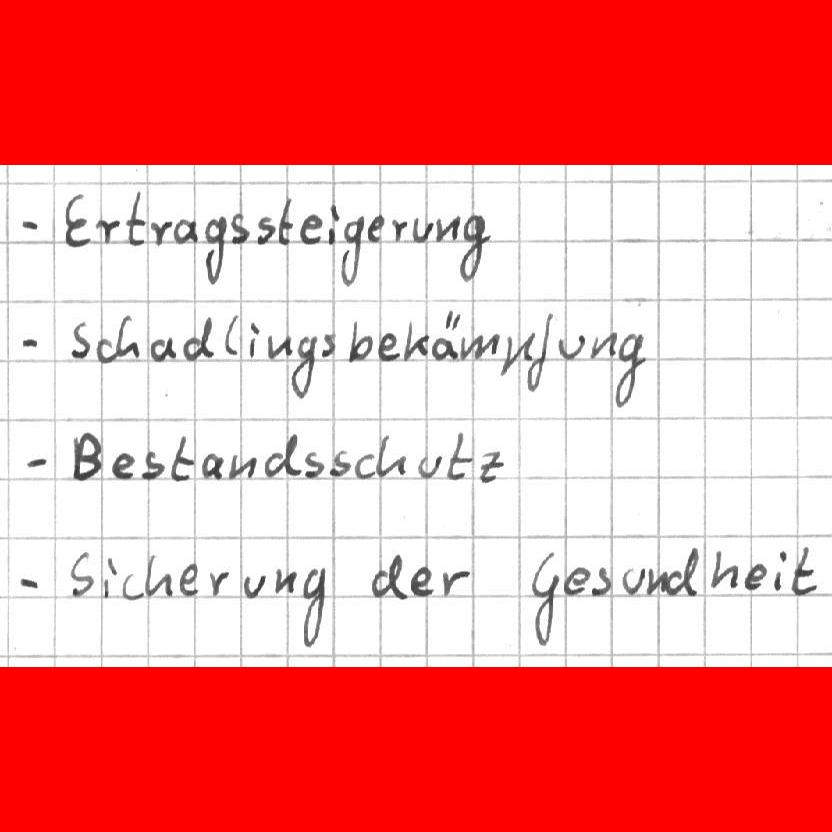 - Ertragssteigerung
- Schadlingsbekämpfung
- Bestandsschutz
- Sicherung der Gesundheit